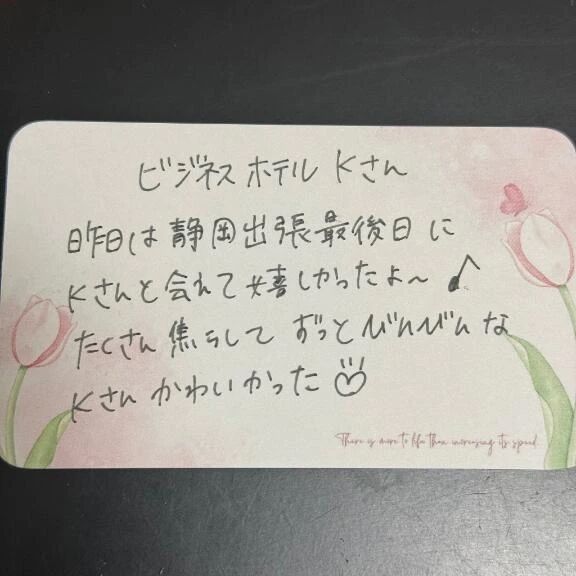 ビジネスホテル Kさん
昨日は静岡出張最後日に
Kさんと会れて嬉しかったよ〜♪
たくさん焦らして ずっとびんびんな
Kさんかわいかった♡
There is more to life than increasing its speed.